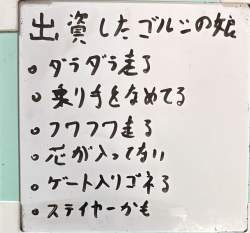 出資したゴルシの娘
・ダラダラ走る
・乗り手をなめてる
・フワフワ走る
・芯が入ってない
・ゲート入りゴネる
・ステイヤーかも